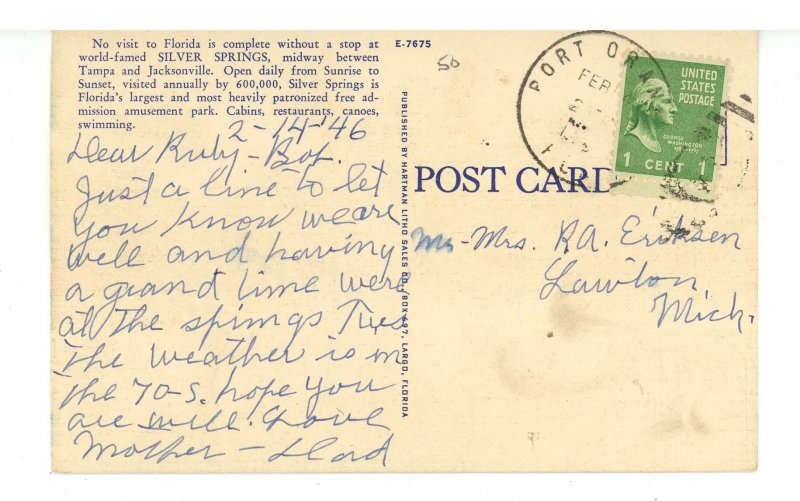 No visit to Florida is complete without a stop at
world-famed SILVER SPRINGS, midway between
Tampa and Jacksonville. Open daily from Sunrise to
Sunset, visited annually by 600,000, Silver Springs is
Florida's largest and most heavily patronized free ad-
mission amusement park. Cabins, restaurants, canoes,
swimming.
2-14-46
Dear Ruby-Bob.
Just a line to let
you know we are
well and having
a grand time were
at the springs Tues
the weather is in
the 70-s. hope you
are well. Love
Mother - Dad
E-7675
50
PUBLISHED BY HARTMAN LITHO SALES CO., BOX 497, LARGO, FLORIDA
POST CARD
PORT ORA
FEB
UNITED
STATES
POSTAGE
GEORGE
WASHINGTON
1 CENT 1
Mr-Mrs. R.A. Eriksen
Lawton,
Mich.